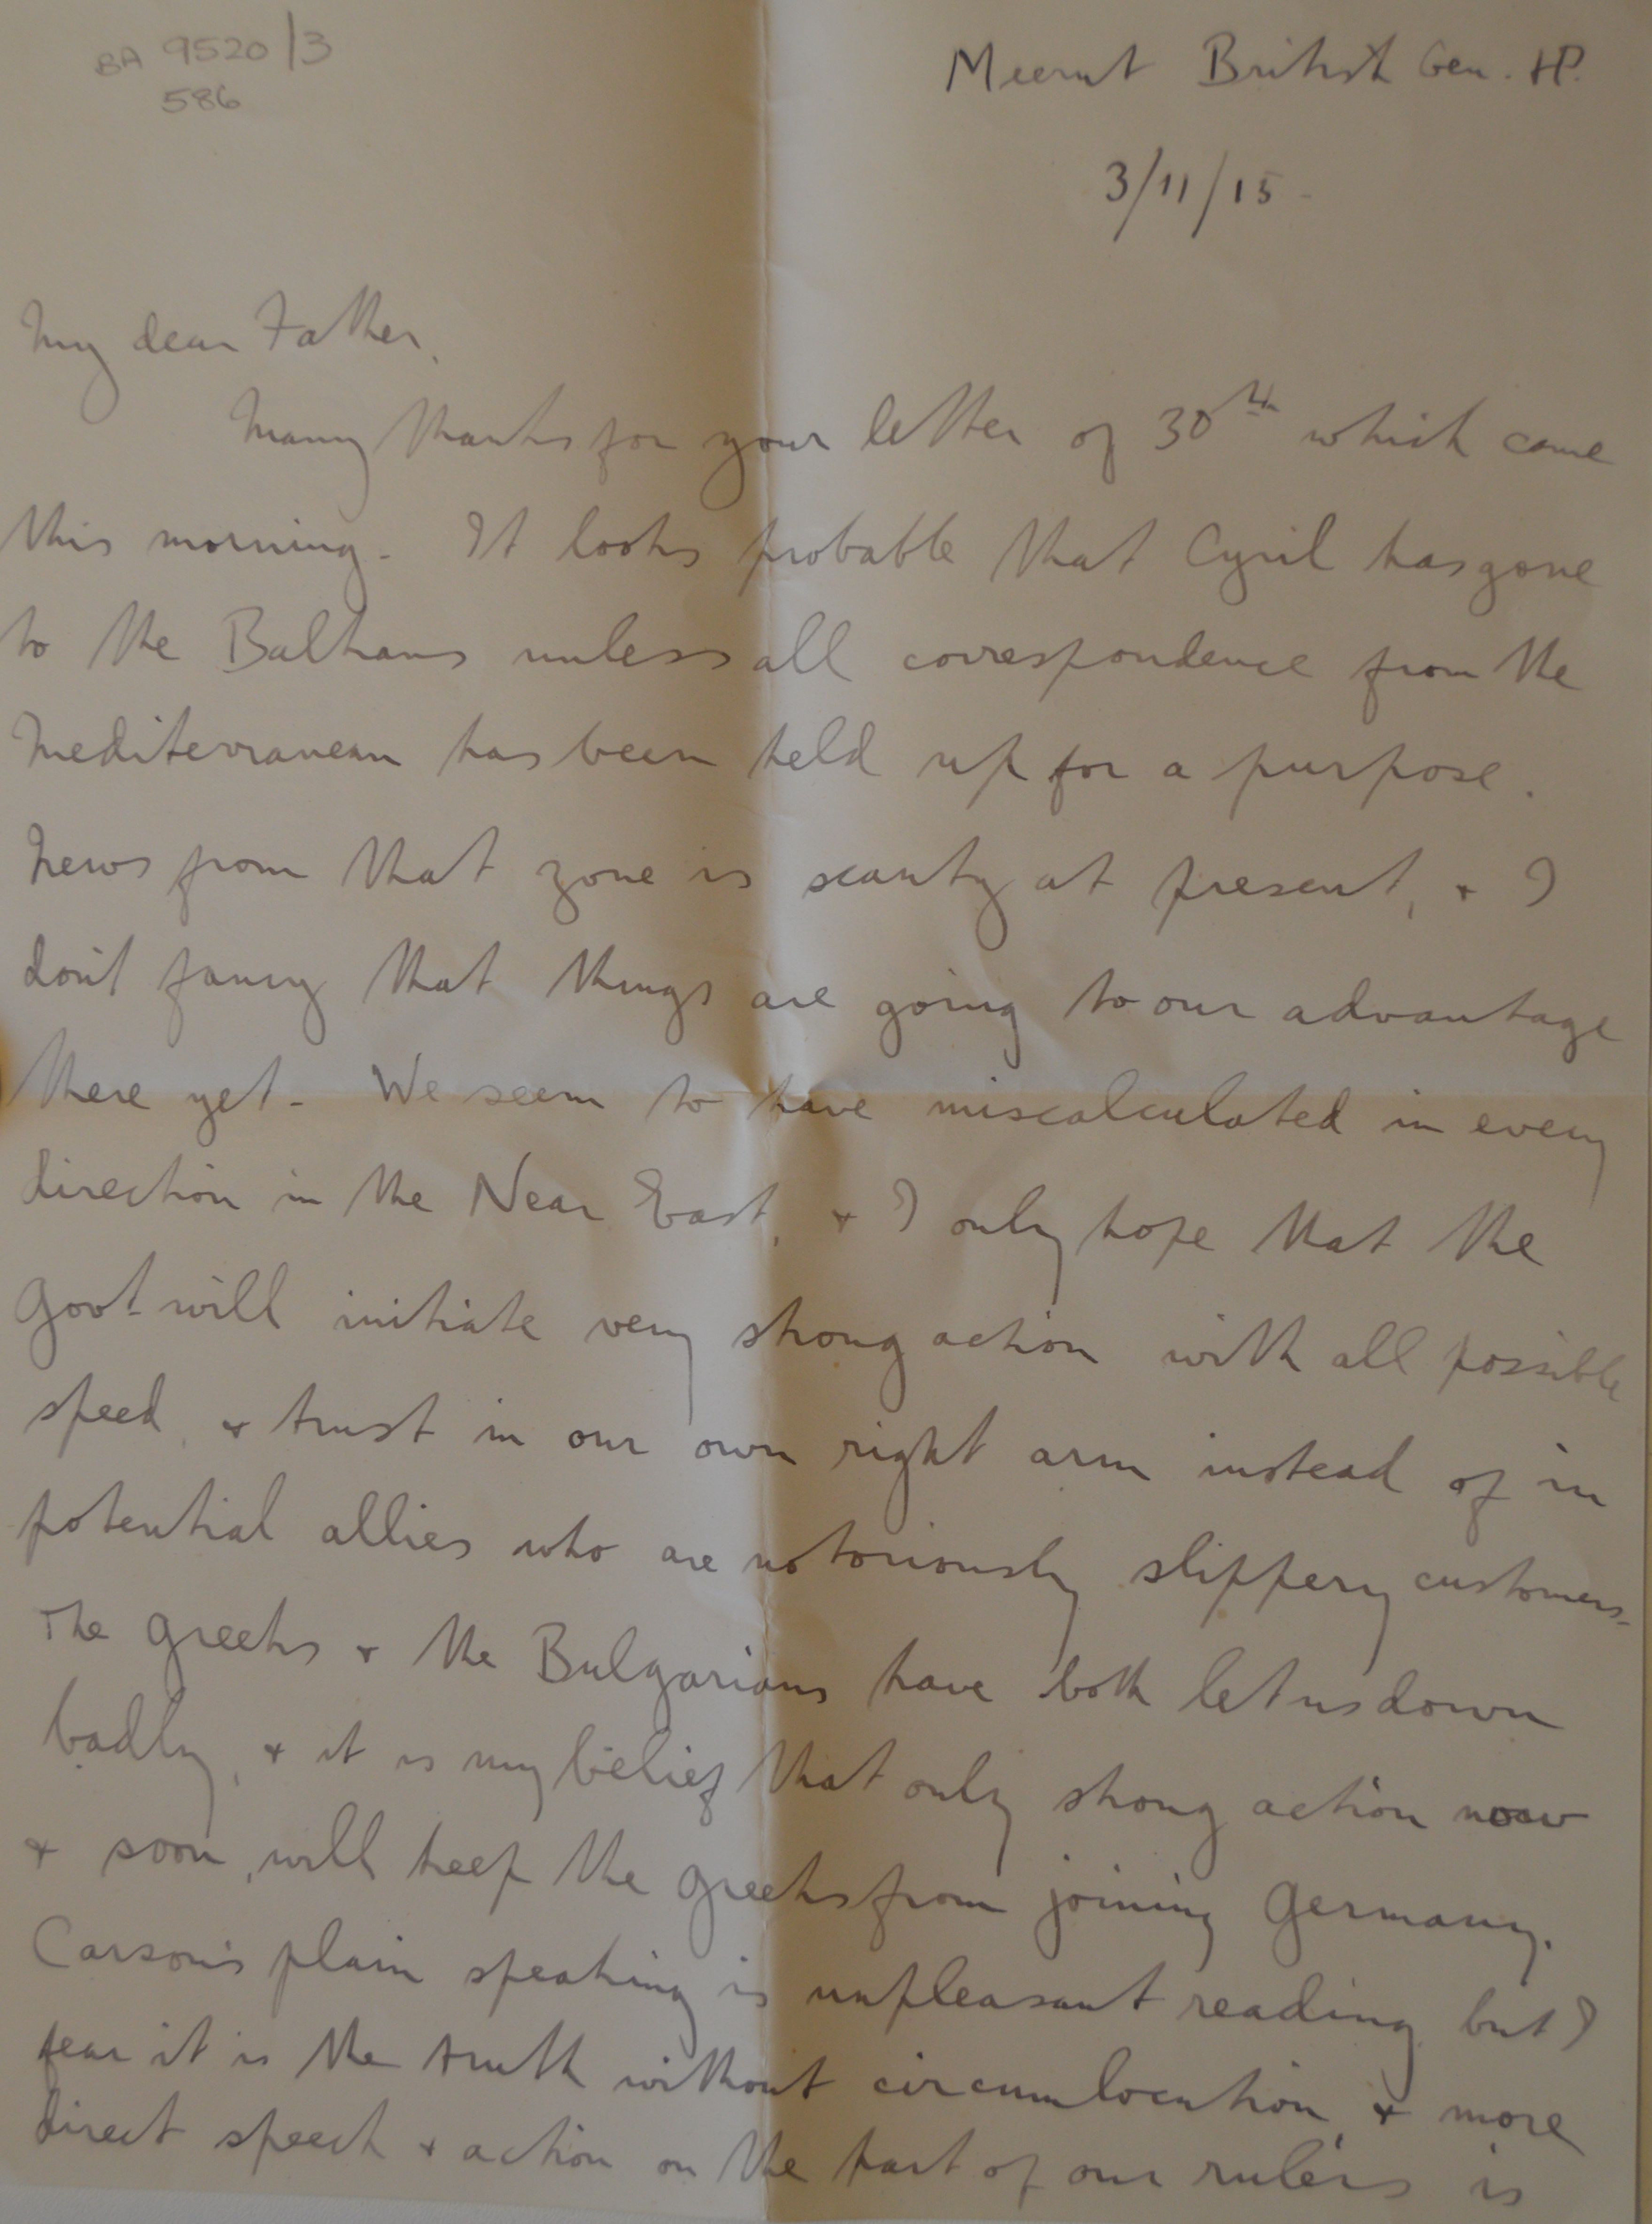 BA 9520/3
586
Meerut British Gen. HP.
3/11/15.
My dear Father,
Many thanks for your letter of 30th which came
this morning. It looks probable that Cyril has gone
to the Balkans unless all correspondence from the
Mediterranean has been held up for a purpose.
News from that zone is scanty at present, & I
don't fancy that things are going to our advantage
there yet. We seem to have miscalculated in every
direction in the Near East, & I only hope that the
Govt will initiate very strong action with all possible
speed, & trust in our own right arm instead of in
potential allies who are notoriously slippery customers.
The Greeks & the Bulgarians have both let us down
badly, & it is my belief that only strong action now
& soon, will keep the Greeks from joining Germany.
Carson's plain speaking is unpleasant reading, but I
fear it is the truth without circumlocution, & more
direct speech & action on the part of our rulers is